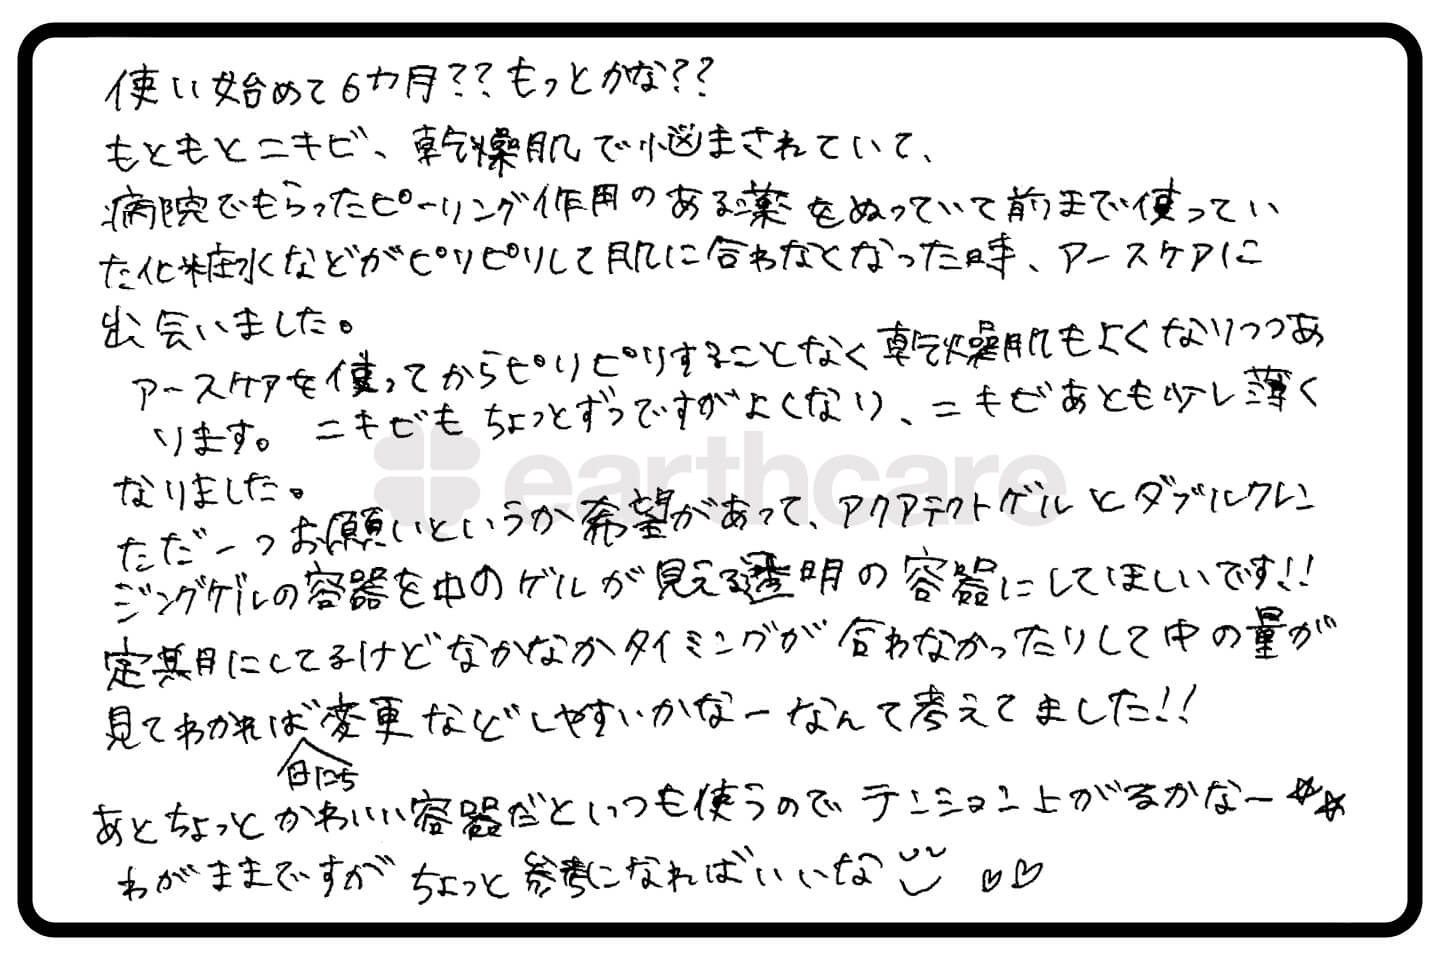 使い始めて6カ月??もっとかな??
もともとニキビ、乾燥肌で悩まされていて、
病院でもらったピーリング作用のある薬をぬっていて前まで使ってい
た化粧水などがピリピリして肌に合わなくなった時、アースケアに
出会いました。
アースケアを使ってからピリピリすることなく乾燥肌もよくなりつつあ
ります。ニキビもちょっとずつですがよくなり、ニキビあとも少し薄く
なりました。
earthcare
ただ一つお願いというか希望があって、アクアテクトゲルとダブルクレン
ジングゲルの容器を中のゲルが見える透明の容器にしてほしいです!!
定期にしてるけどなかなかタイミングが合わなかったりして中の量が
見てわかれば変更などしやすいかなーなんて考えてました!!
日にち
あとちょっとかわいい容器だといつも使うのでテンション上がるかなー☆☆
わがままですがちょっと参考になればいいな ♡♡